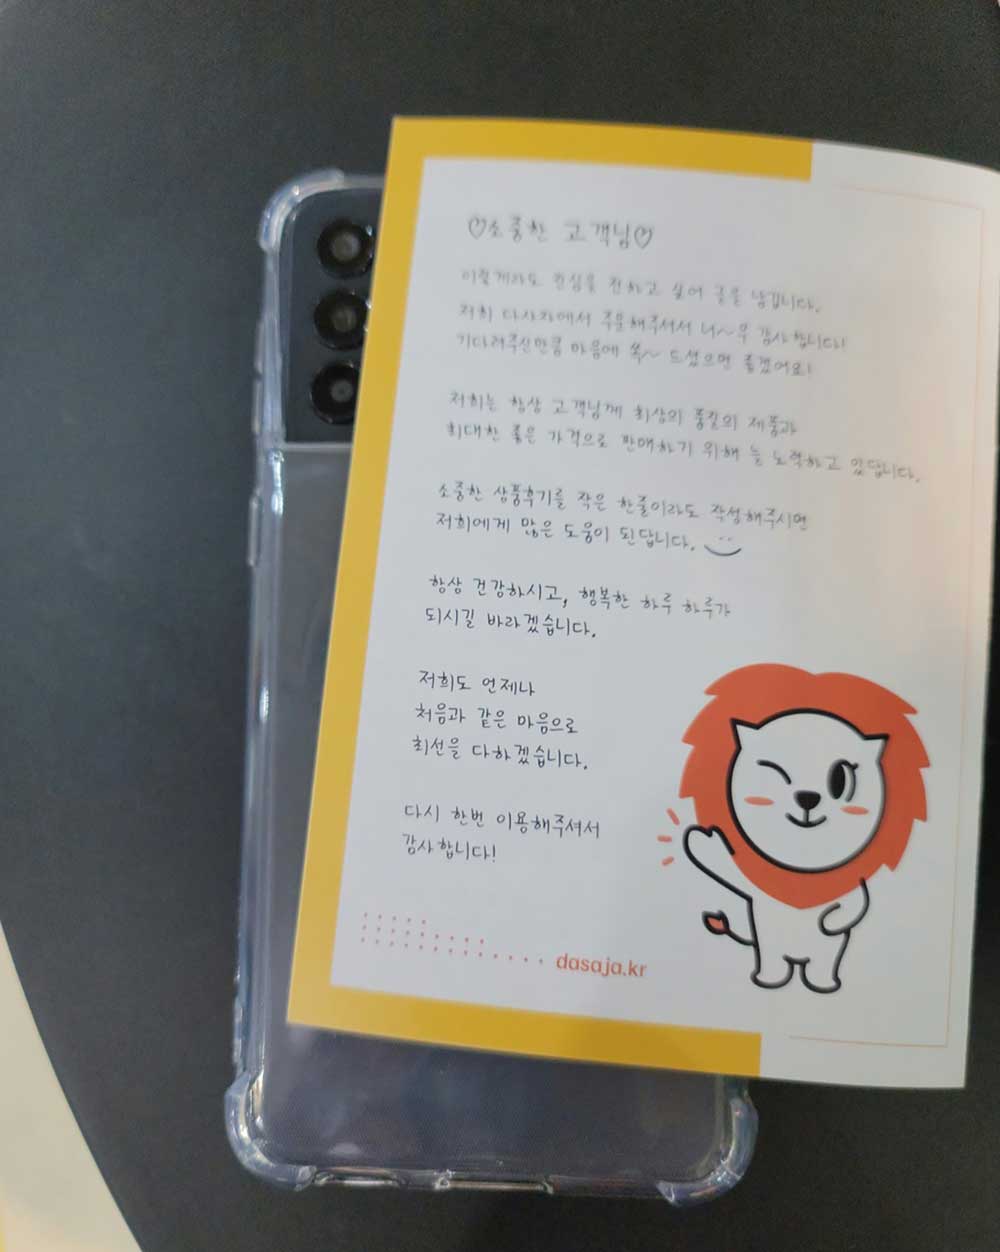 ♡소중한 고객님♡
이렇게라도 진심을 전하고 싶어 글을 남깁니다.
저희 다사자에서 주문해주셔서 너~무 감사합니다!
기다려주신만큼 마음에 쏙~ 드셨으면 좋겠어요!
저희는 항상 고객님께 최상의 품질의 제품과
최대한 좋은 가격으로 판매하기 위해 늘 노력하고 있답니다.
소중한 상품후기를 작은 한줄이라도 작성해주시면
저희에게 많은 도움이 된답니다.
항상 건강하시고, 행복한 하루 하루가
되시길 바라겠습니다.
저희도 언제나
처음과 같은 마음으로
최선을 다하겠습니다.
다시 한번 이용해주셔서
감사합니다!
dasaja.kr